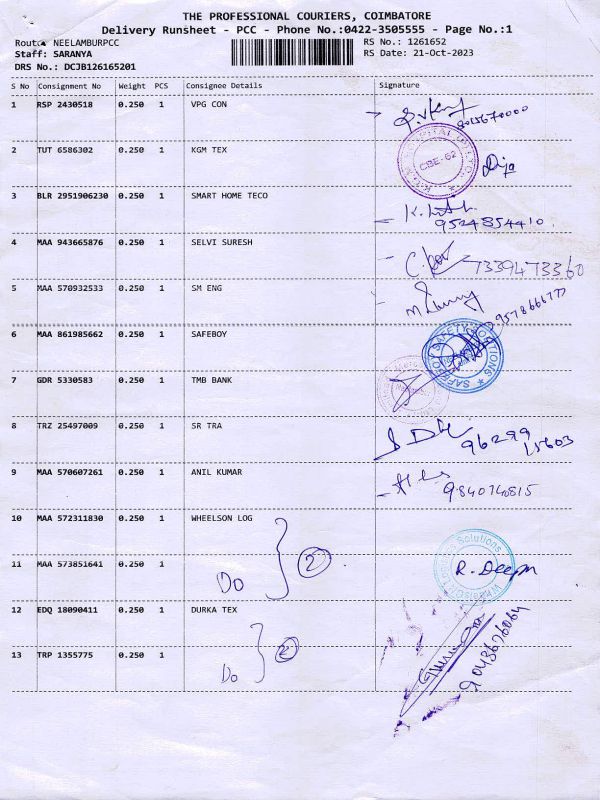 THE PROFESSIONAL COURIERS, COIMBATORE
Delivery Runsheet - PCC - Phone No.:0422-3505555 - Page No.:1
Route: NEELAMBURPCC
RS No.: 1261652
Staff: SARANYA
RS Date: 21-Oct-2023
DRS No.: DCJB126165201
S No Consignment No Weight PCS Consignee Details Signature
1 RSP 2430518 0.250 1 VPG CON
2 TUT 6586302 0.250 1 KGM TEX
CBE-62
3 BLR 2951906230 0.250 1 SMART HOME TECO
9524854410
4 MAA 943665876 0.250 1 SELVI SURESH
7339473360
5 MAA 570932533 0.250 1 SM ENG
6 MAA 861985662 0.250 1 SAFEBOY
SAFEBOY SAFETY SOLUTIONS
7 GDR 5330583 0.250 1 TMB BANK
8 TRZ 25497009 0.250 1 SR TRA
96299
15603
9 MAA 570607261 0.250 1 ANIL KUMAR
9840740815
10 MAA 572311830 0.250 1 WHEELSON LOG
11 MAA 573851641 0.250 1
Do 2
R. Deepa
12 EDQ 18090411 0.250 1 DURKA TEX
13 TRP 1355775 0.250 1
Do 2
9043676064